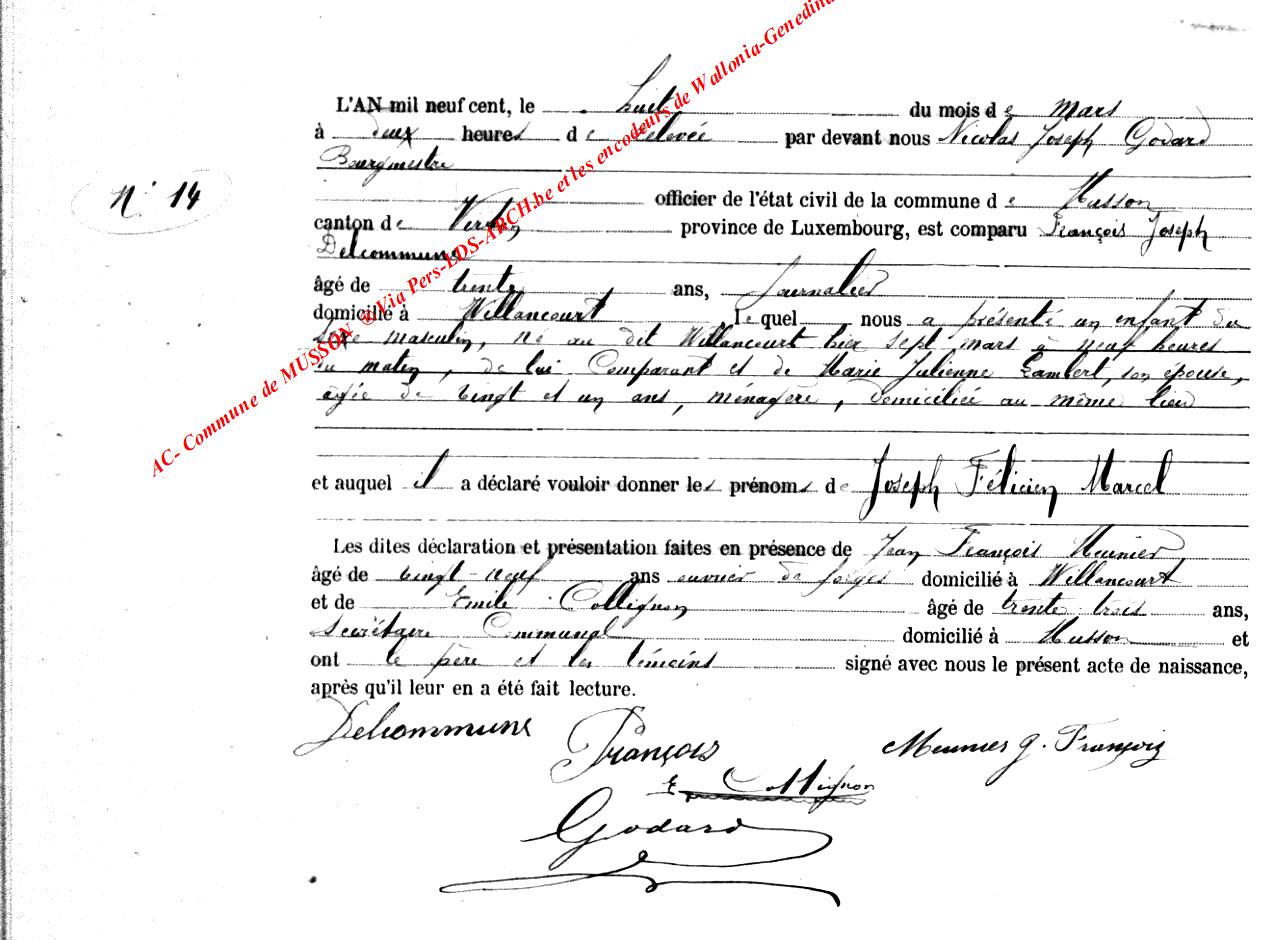 L'AN mil neuf cent, le huit du mois de mars
à deux heures de relevée par devant nous Nicolas Joseph Godard
Bourgmestre
officier de l'état civil de la commune de Musson
N° 14
canton de Virton province de Luxembourg, est comparu François Joseph
Delcommune
âgé de trente ans, journalier
domicilié à Willancourt, lequel nous a présenté un enfant du
sexe masculin, né au dit Willancourt hier sept mars à neuf heures
du matin, de lui Comparant et de Marie Julienne Lambert, son épouse,
âgée de vingt et un ans, ménagère, domiciliée au même lieu
et auquel il a déclaré vouloir donner les prénoms de Joseph Félicien Marcel
Les dites déclaration et présentation faites en présence de Jean François Meunier,
âgé de vingt-neuf ans ouvrier de forges domicilié à Willancourt
et de Emile Collignon âgé de trente trois ans,
secrétaire Communal domicilié à Musson et
ont le père et les témoins signé avec nous le présent acte de naissance,
après qu'il leur en a été fait lecture.
Delcommune François Meunier J. François
E Collignon
Godard
AC- Commune de MUSSON ® Via Pers-LDS-ARCH.be et les encodeurs de Wallonia-Genedina